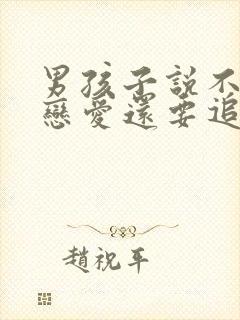 男孩子説不
戀愛還要追
趙祝平